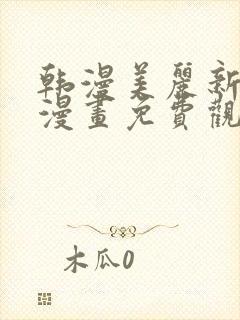 韩漫美麗新
漫畫免費觀
木瓜0